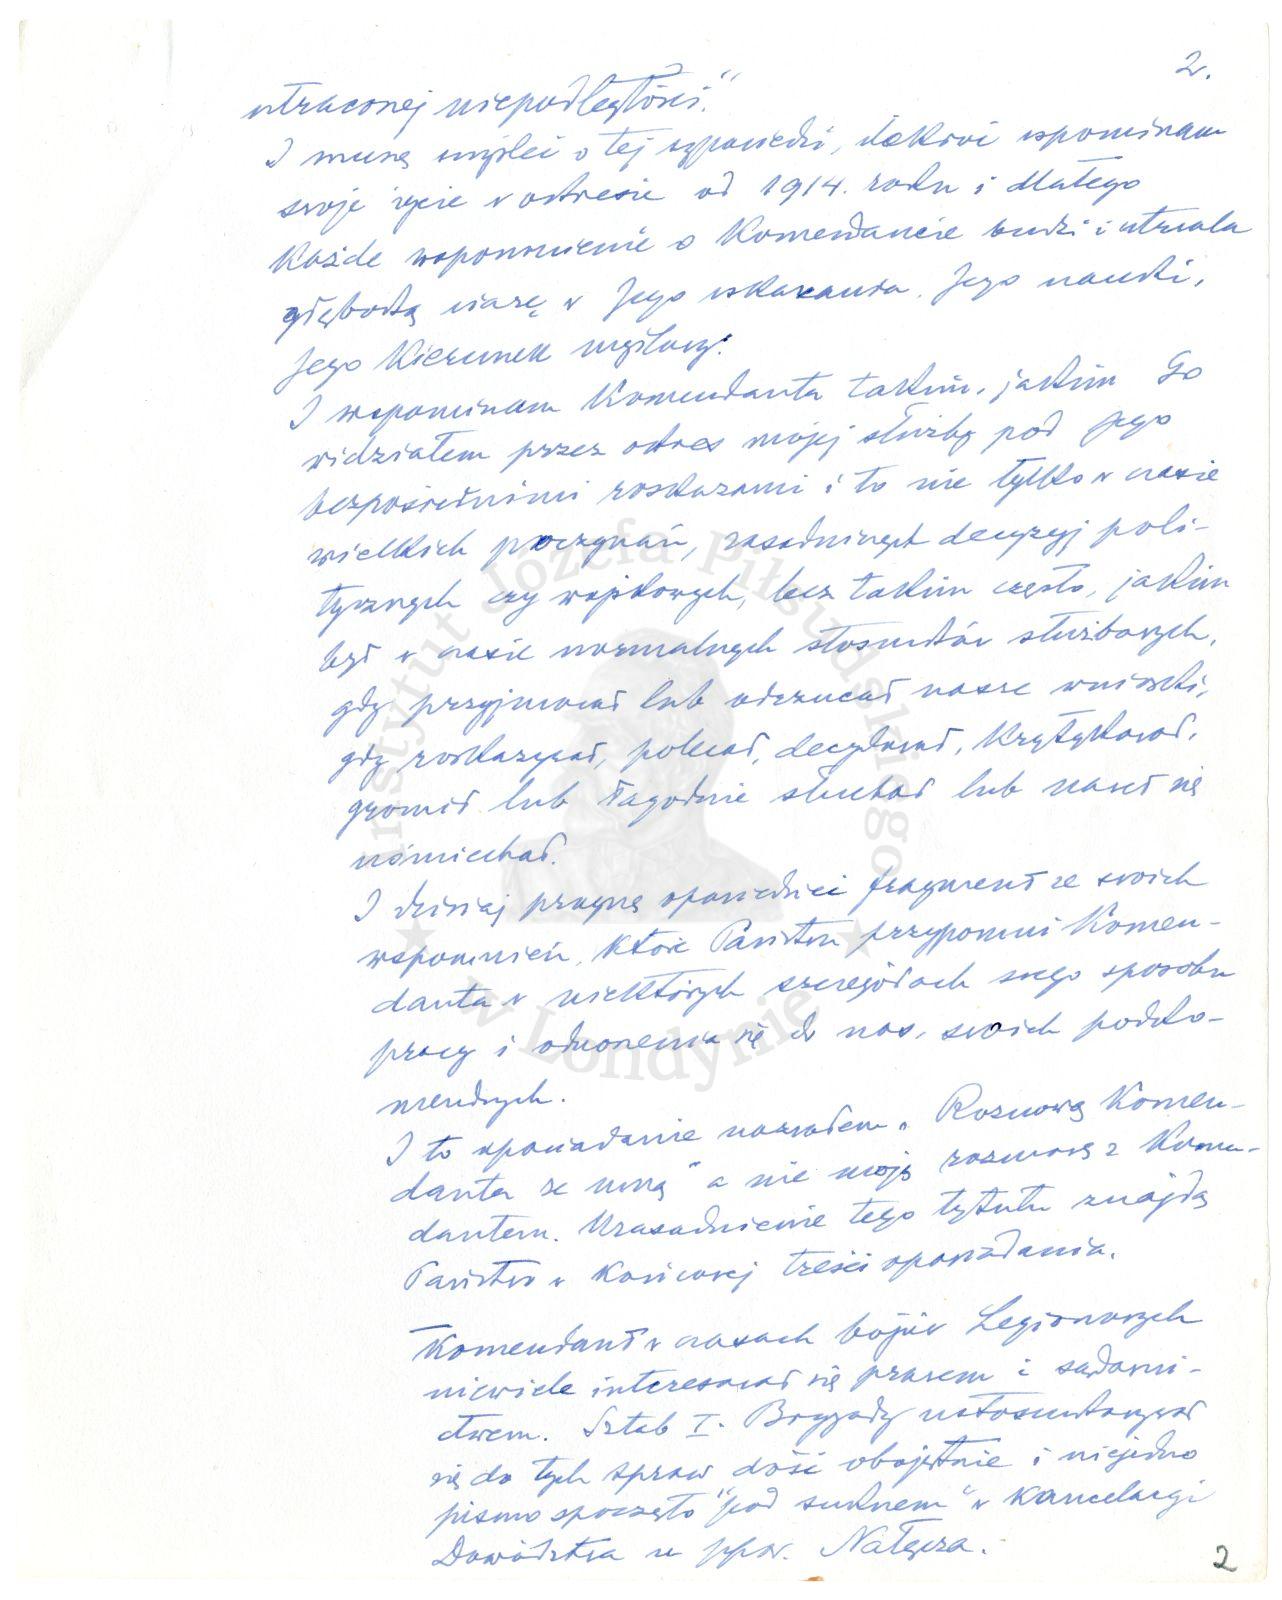 2.
utraconej niepodległości."
I muszę myśleć o tej wypowiedzi, ilekroć wspominam
swoje życie w okresie od 1914. roku i dlatego
każde wspomnienie o Komendancie budzi i utrwala
głęboką wiarę w Jego wskazania, Jego nauki,
Jego kierunek myślowy.
I wspominam Komendanta takim, jakim Go
widziałem przez okres mojej służby pod Jego
bezpośrednimi rozkazami i to nie tylko w czasie
wielkich poczynań, zasadniczych decyzyj poli-
tycznych czy wojskowych, lecz takim często, jakim
był w czasie normalnych stosunków służbowych,
gdy przyjmował lub odrzucał nasze wnioski,
gdy rozkazywał, polecał, decydował, krytykował,
gromił lub łagodnie słuchał lub nawet się
uśmiechał.
I dzisiaj pragnę opowiedzieć fragment ze swoich
wspomnień, które Państwu przypomni Komen-
danta w niektórych szczegółach swego sposobu
pracy i odnoszenia się do nas, swoich podko-
mendnych.
I to opowiadanie nazwałem „Rozmową Komen-
danta ze mną" a nie moją rozmową z Komen-
dantem. Uzasadnienie tego tytułu znajdą
Państwo w końcowej treści opowiadania.
Komendant w czasach bojów Legionowych
niewiele interesował się prawem i sądowni-
ctwem. Sztab I. Brygady ustosunkowywał
się do tych spraw dość obojętnie i niejedno
pismo spoczęło "pod suknem" w kancelarji
Dowództwa u ppor. Nałęcza.
2
Instytut Józefa Piłsudskiego
w Londynie